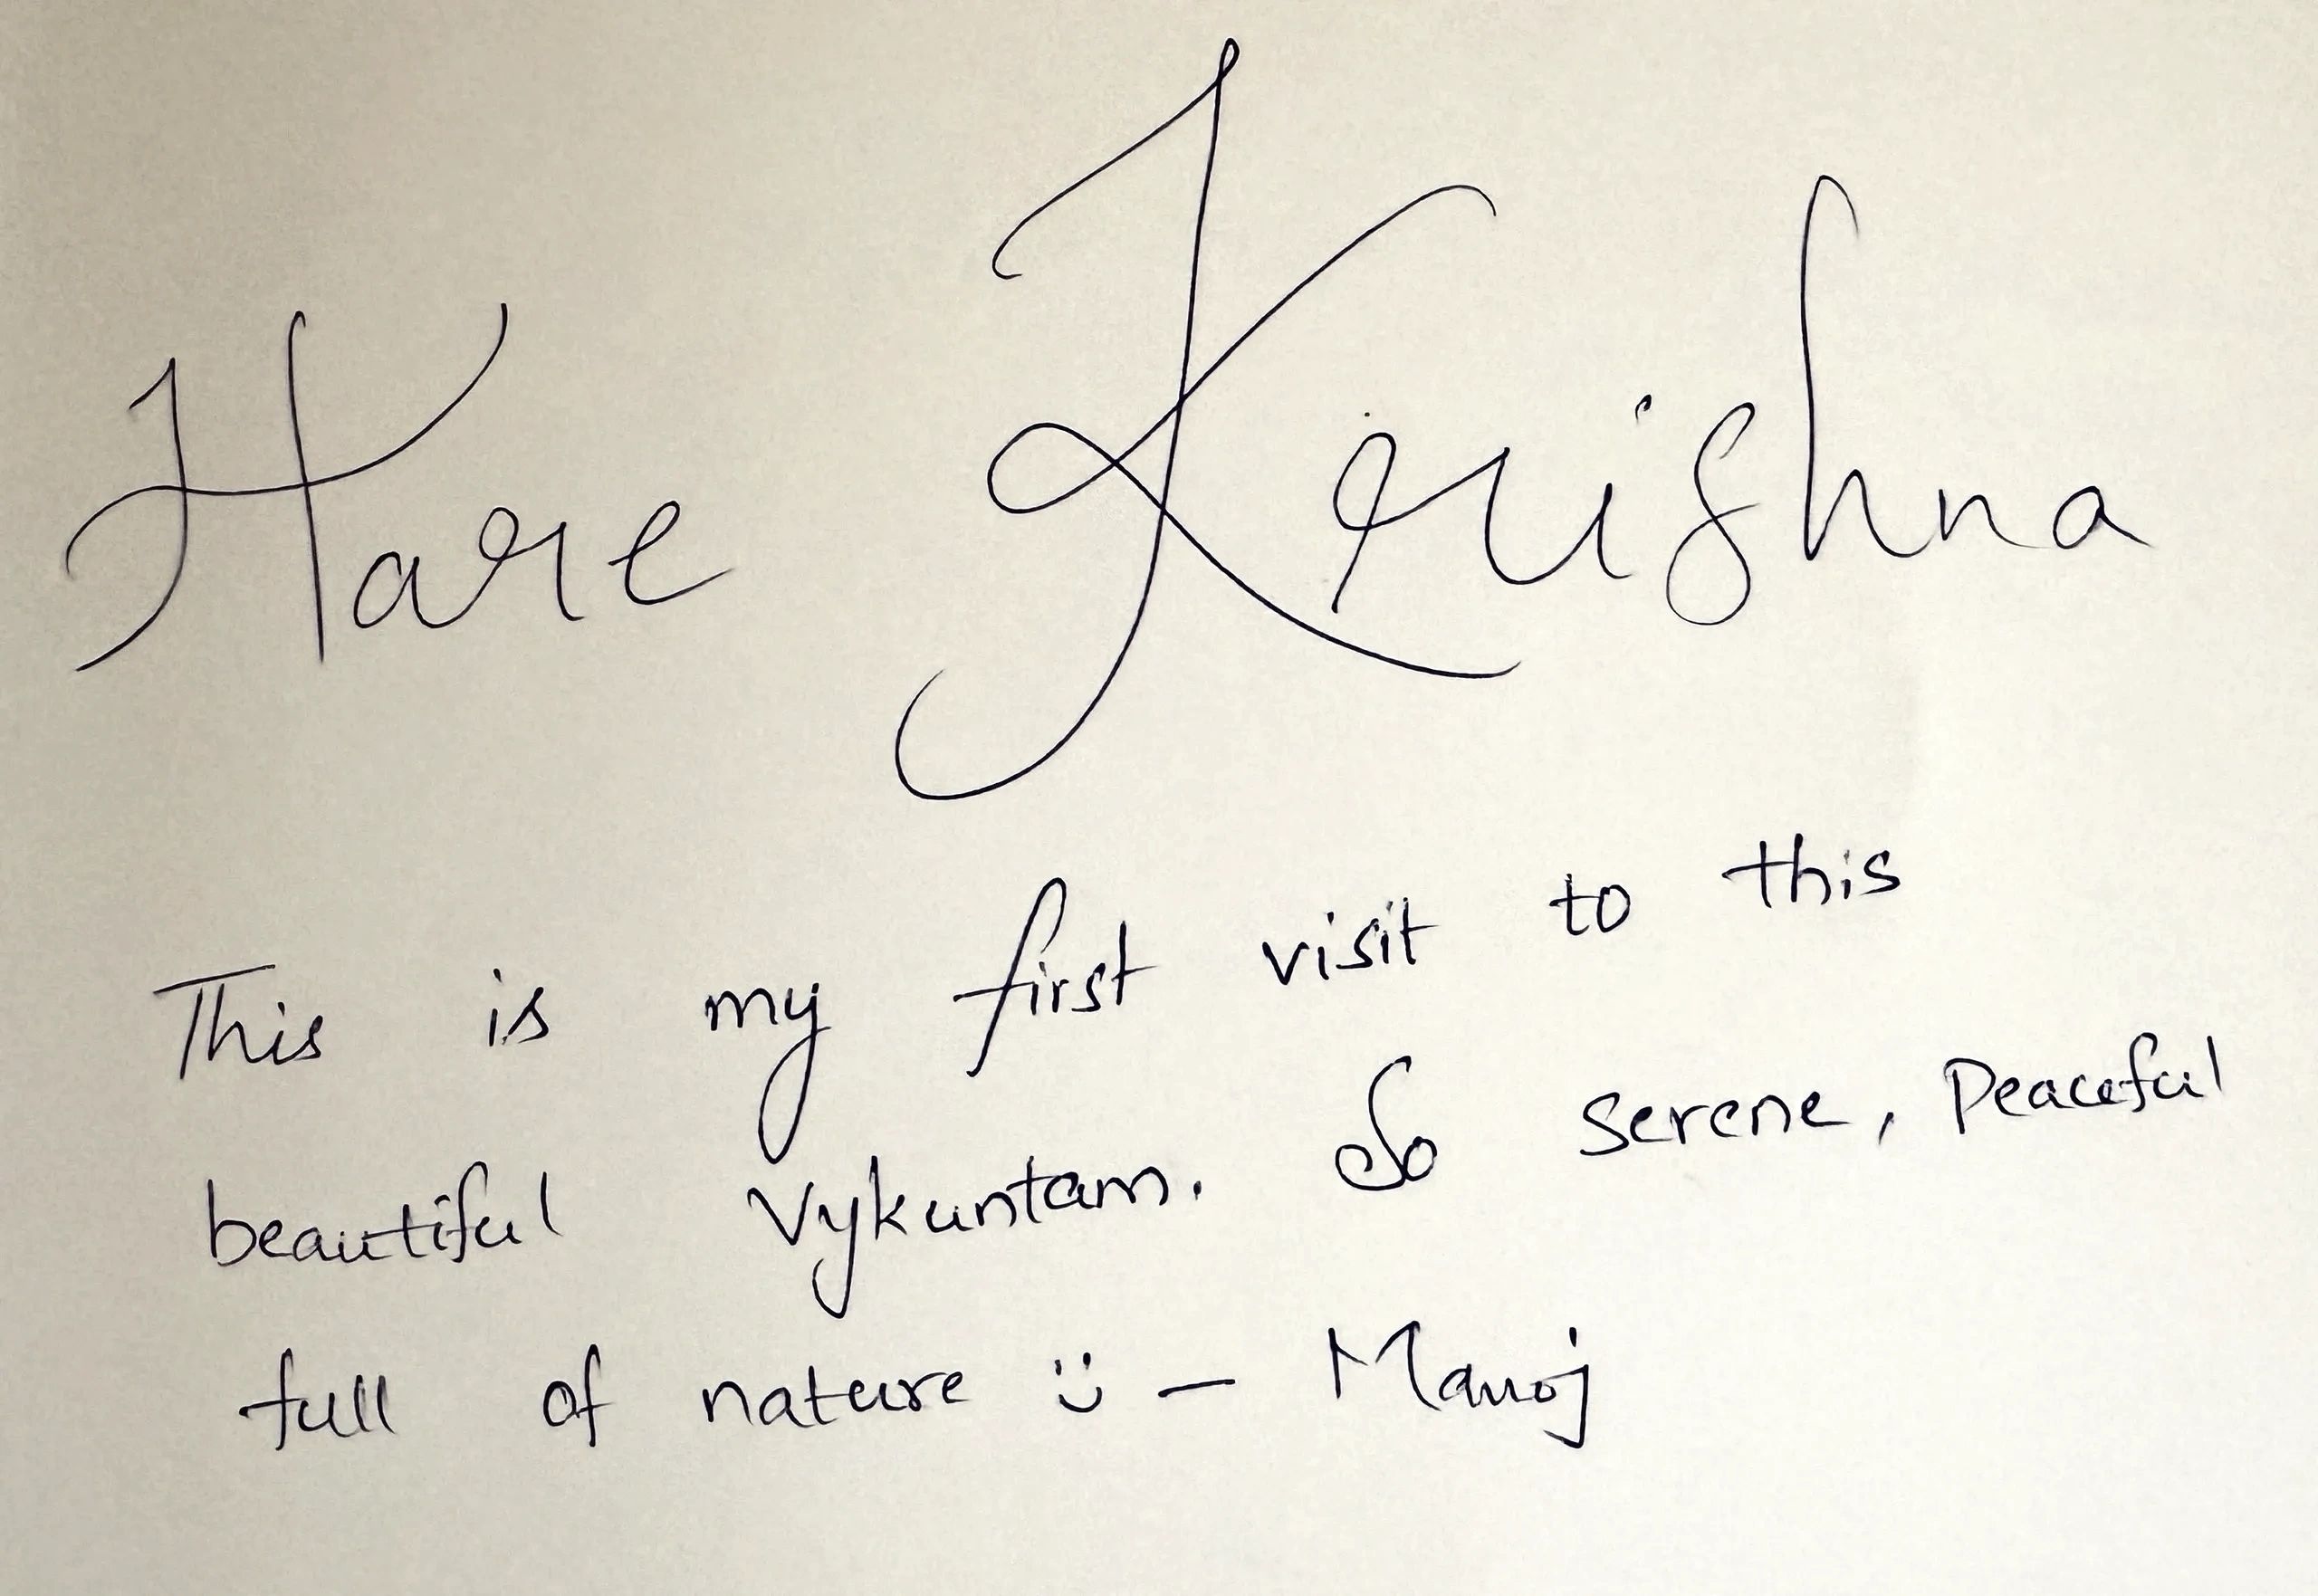 Hare Krishna
This is my first visit to this
beautiful Vykuntam. So serene, Peaceful
full of nature :) — Manoj